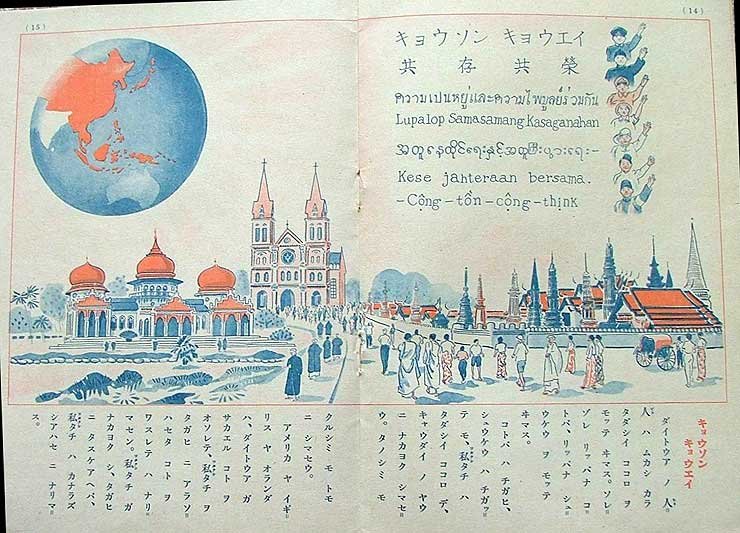 (14)
キョウソン キョウエイ
共 存 共 榮
ความเปนหยู่และความไพบูลย์ร่วมกัน
Lupalop Samasamang Kasaganahan
အတူနေထိုင်ရေးနှင့်အတူကြီးပွားရေး-
Kese jahteraan bersama.
-Cộng-tồn-cộng-think
キョウソン
キョウエイ
ダイトウア ノ 人
人ハ ムカシ カラ
タダシイ ココロ ヲ
モッテ ヰマス。ソレ
ゾレ リッパナ コ
トバ、リッパナ シュ
ウケウ ヲ モッテ
ヰマス。
コトバ ハ チガヒ、
シュウケウ ハ チガッ
テ モ、私タチ ハ
タダシイ ココロ デ、
キャウダイ ノ ヤウ
ニ ナカヨク シマセ
ウ。タノシミ モ
(15)
クルシミ モ トモ
ニ シマセウ。
アメリカ ヤ イギ
リス ヤ オランダ
ハ、ダイトウア ガ
サカエル コト ヲ
オソレテ、私タチ ヲ
タガヒ ニ アラソ
ハセタ コト ヲ
ワスレテ ハ ナリ
マセン。私タチ ガ
ナカヨク シ、タガヒ
ニ タスケアヘバ、
私タチ ハ カナラズ
シアハセ ニ ナリマ
ス。